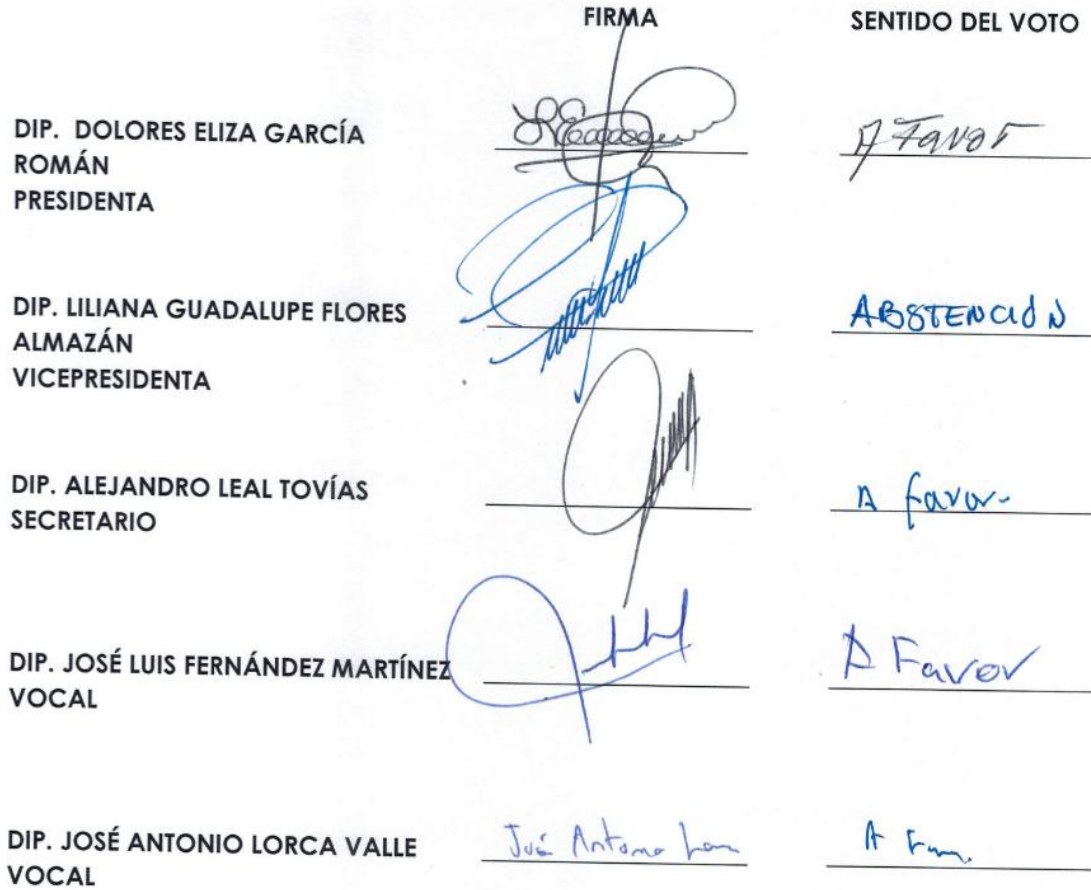 FIRMA SENTIDO DEL VOTO
DIP. DOLORES ELIZA GARCÍA
ROMÁN
PRESIDENTA
A Favor
DIP. LILIANA GUADALUPE FLORES
ALMAZÁN
VICEPRESIDENTA
ABSTENCIÓN
DIP. ALEJANDRO LEAL TOVÍAS
SECRETARIO
A favor.
DIP. JOSÉ LUIS FERNÁNDEZ MARTÍNEZ
VOCAL
A Favor
DIP. JOSÉ ANTONIO LORCA VALLE José Antonio A
VOCAL